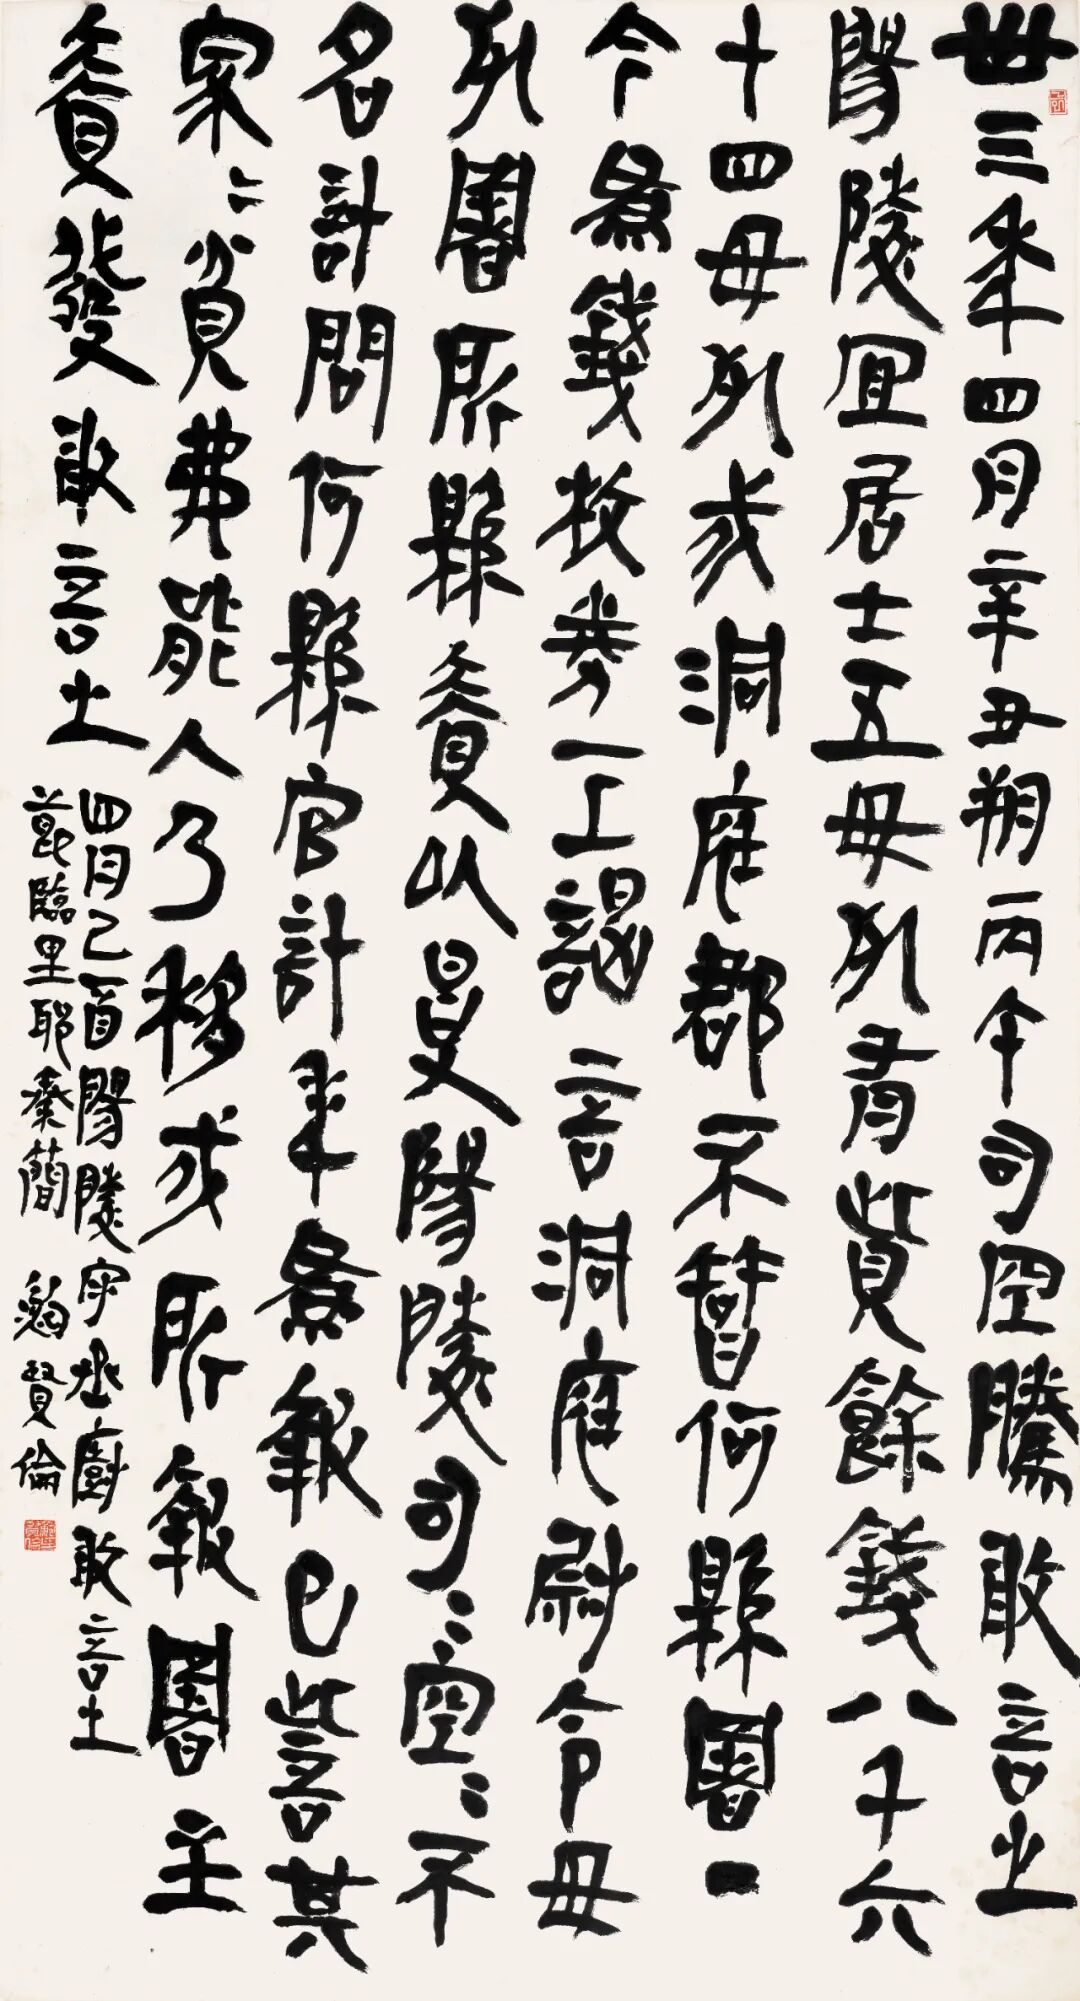 卅三年四月辛丑朔丙午司空騰敢言之
陽陵宜居士五毋死有貲餘錢八千六
十四毋死戍洞庭郡不智何縣署一
今為錢校券一上謁言洞庭尉令毋
死署所縣責以受陽陵司〻空〻不
名計問何縣官計年為報已訾其
家〻貧弗能入乃移戍所報署主
責發敢言之
四月己酉陽陵守丞廚敢言之
節臨里耶秦簡 鮑賢倫